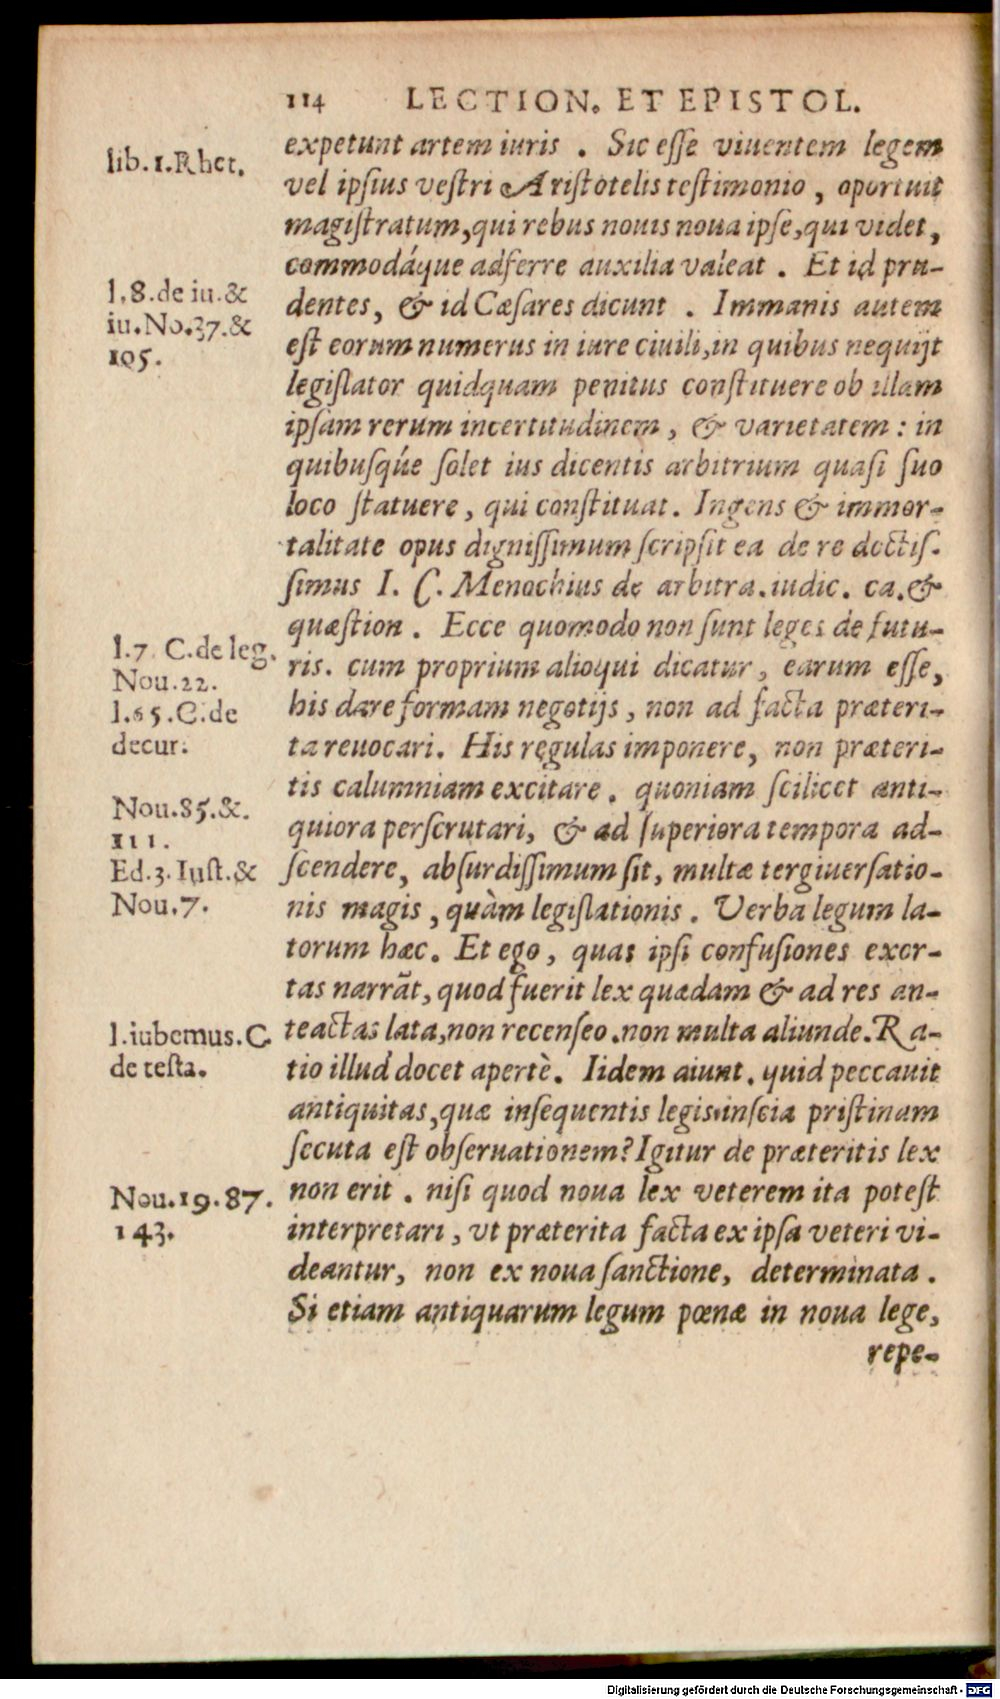 114 LECTION. ET EPISTOL.
expetunt artem iuris . Sic esse viuentem legem
lib.1.Rhet.
vel ipsius vestri Aristotelis testimonio , oportuit
magistratum,qui rebus nouis noua ipse,qui videt,
commodáque adferre auxilia valeat . Et id pru-
l.8.de iu.&
iu.No.37.&
105.
dentes, & id Cæsares dicunt . Immanis autem
est eorum numerus in iure ciuili,in quibus nequijt
legislator quidquam penitus constituere ob illam
ipsam rerum incertitudinem , & varietatem : in
quibusqúe solet ius dicentis arbitrium quasi suo
loco statuere , qui constituat. Ingens & immor-
talitate opus dignissimum scripsit ea de re doctis-
simus I. C. Menochius de arbitra.iudic. ca.&
quæstion . Ecce quomodo non sunt leges de futu-
l.7. C.de leg.
Nou.22.
l.65.C.de
decur.
ris. cum proprium alioqui dicatur , earum esse,
his dare formam negotijs , non ad facta præteri-
ta reuocari. His regulas imponere, non præteri-
tis calumniam excitare . quoniam scilicet anti-
Nou.85.&.
111.
Ed.3.Iust.&
Nou.7.
quiora perscrutari, & ad superiora tempora ad-
scendere, absurdissimum sit, multæ tergiuersatio-
nis magis , quàm legislationis . Verba legum la-
torum hæc. Et ego , quas ipsi confusiones exor-
tas narrãt, quod fuerit lex quædam & ad res an-
l.iubemus.C.
de testa.
teactas lata,non recenseo.non multa aliunde.Ra-
tio illud docet apertè. Iidem aiunt. quid peccauit
antiquitas,quæ insequentis legis inscia pristinam
secuta est obseruationem?Igitur de præteritis lex
Nou.19.87.
143.
non erit . nisi quod noua lex veterem ita potest
interpretari , vt præterita facta ex ipsa veteri vi-
deantur, non ex noua sanctione, determinata .
Si etiam antiquarum legum pœnæ in noua lege,
repe-
Digitalisierung gefördert durch die Deutsche Forschungsgemeinschaft - DFG